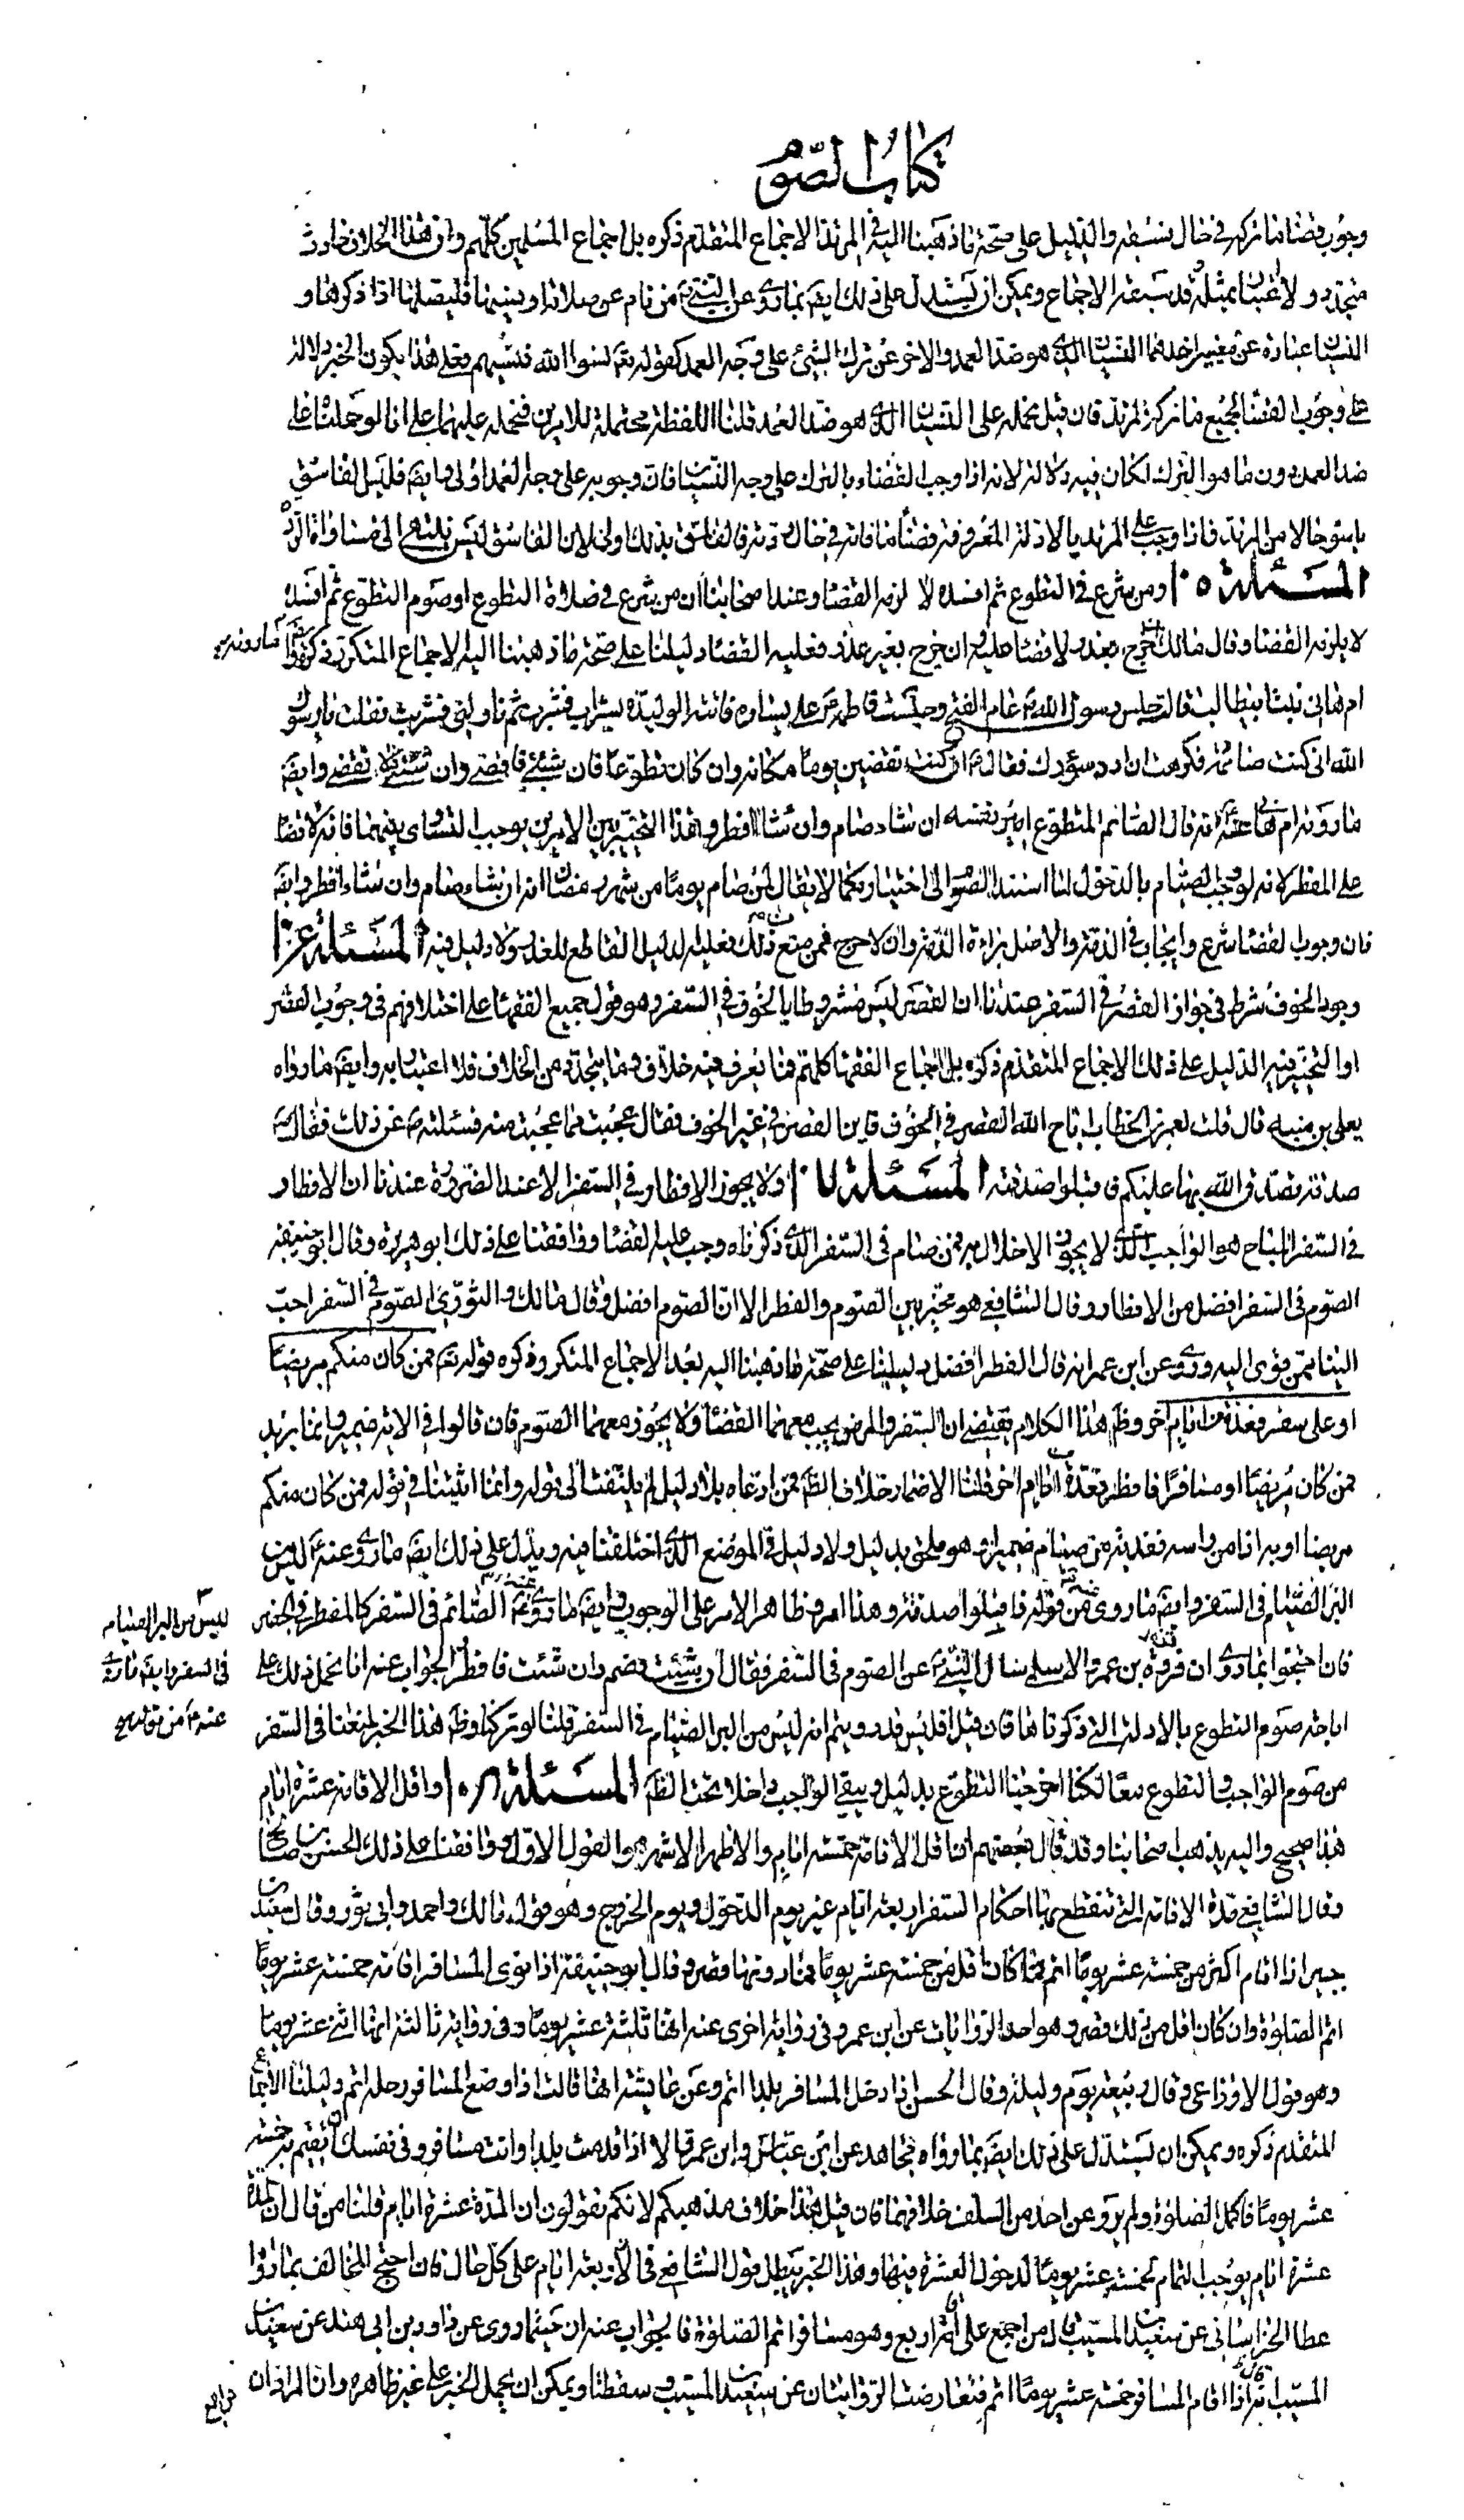 كتاب الصوم
وجوب قضاء ما تركه في حال فسقه والدليل على صحة ما ذهبنا اليه في المرتد الاجماع المتقدم ذكره بل اجماع المسلمين كلهم وان هذا الخلاف حادث
متجدد ولا اعتبار بمثله قد سبقه الاجماع ويمكن ان يستدل على ذلك ايضا بما روى عن النبي من نام عن صلاة او نسيها فليصلها اذا ذكرها و
النسيان عبارة عن معنيين احدهما النسيان الذي هو ضد العمد والاخر عن ترك الشيئ على وجه العمد كقوله تعالى نسوا الله فنسيهم فعلى هذا يكون الخبر دلالة
على وجوب القضاء لجميع ما تركه المرتد فان قيل نحمله على النسيان الذي هو ضد العمد قلنا اللفظة محتملة للامرين فنحمله عليهما على انا لو حملناه على
ضد العمد دون ما هو الترك لكان فيه دلالة لانه اذا وجب القضاء بالترك على وجه النسيان فان وجوبه على وجه العمد اولى وايضا فليس الفاسق
باسوء حالا من المرتد فاذا وجب على المرتد بالادلة المعروفة قضاء ما فاته في حال ردته فالفاسق بذلك اولى لان الفاسق ليس ينتهى الى مساواة الردة
المسئلة ١٠٥ ومن شرع في التطوع ثم افسده لا لزمه القضاء وعند اصحابنا ان من شرع في صلاة التطوع او صوم التطوع ثم افسده
لا يلزمه القضاء وقال مالك ان خرج بعذر لا قضاء عليه وان خرج بغير عذر فعليه القضاء دليلنا على صحة ما ذهبنا اليه الاجماع المتكرر ذكره وايضا ما روته
ام هاني بنت ابيطالب قالت جلس رسول الله عام الفتح وجلست فاطمة على يساره فاتته الوليدة بشراب فشرب ثم ناولني فشربت فقلت يا رسول
الله اني كنت صائمة فكرهت ان ارد سؤرك فقال ان كنت تقضين يوما مكانه وان كان تطوعا فان شئت فاقضى وان شئت فلا تقضى وايضا
ما روته ام هاني عنه انه قال الصائم المتطوع امير نفسه ان شاء صام وان شاء افطر وهذا التخيير بين الامرين يوجب التساوى بينهما فانه لا قضاء
على المفطر لانه لو وجب الصيام بالدخول لما اسند الصوم الى اختياره كما لا يقال لمن صام يوما من شهر رمضان انه ان شاء صام وان شاء افطر وايضا
فان وجوب القضاء شرع وايجاب في الذمة والاصل براءة الذمة وان لا حرج فمن منع من ذلك فعليه الدليل القاطع للعذر ولا دليل فيه المسئلة
وجود الخوف شرط في جواز القصر في السفر عندنا ان القصر ليس مشروطا بالخوف في السفر وهو قول جميع الفقهاء على اختلافهم في وجوب القصر
او التخيير فيه الدليل على ذلك الاجماع المتقدم ذكره بل اجماع الفقهاء كلهم فما نعرف فيه خلاف وما يتجدد من الخلاف فلا اعتبار به وايضا ما رواه
يعلى بن منبه قال قلت لعمر بن الخطاب اباح الله القصر في الخوف فاين القصر في غير الخوف فقال عجبت مما عجبت منه فسئلته عن ذلك فقال
صدقة تصدق الله بها عليكم فاقبلوا صدقته المسئلة ١٠٧ ولا يجوز الافطار في السفر الا عند الضرورة عندنا ان الافطار
في السفر المباح هو الواجب الذي لا يجوز الاخلال به فمن صام في السفر الذي ذكرناه وجب عليه القضاء ووافقنا على ذلك ابو هريرة وقال ابو حنيفة
الصوم في السفر افضل من الافطار وقال الشافعي هو مخير بين الصوم والفطر الا ان الصوم افضل وقال مالك والثوري الصوم في السفر احب
الينا لمن قوى اليه وروى عن ابن عمر انه قال الفطر افضل دليلنا على صحة ما ذهبنا اليه بعد الاجماع المتكرر ذكره قوله تعالى فمن كان منكم مريضا
او على سفر فعدة من ايام اخر وظاهر هذا الكلام يقتضى ان السفر والمرض يجب معهما القضاء ولا يجوز معهما الصوم فان قالوا في الاية ضمير وانما يريد
فمن كان مريضا او مسافرا فافطر فعدة من ايام اخر قلنا الاضمار خلاف الظاهر فمن ادعاه بلا دليل لم يلتفت الى قوله وانما اثبتنا في قوله فمن كان منكم
مريضا او به اذى من راسه ففدية من صيام ضميرا وهو ملحق بدليل ولا دليل في الموضع الذي اختلفنا فيه ويدل على ذلك ايضا ما روى عنه ليس من
البر الصيام في السفر وايضا ما روى عنه من قوله فاقبلوا صدقته وهذا امر وظاهر الامر على الوجوب وايضا ما روى عنه الصائم في السفر كالمفطر في الحضر
فان احتجوا بما روى ان حمزة بن عمرو الاسلمي سال النبي عن الصوم في السفر فقال ان شئت فصم وان شئت فافطر الجواب عنه انا نحمل ذلك على
اباحة صوم التطوع بالادلة التي ذكرناها فان قيل افليس قد رويتم انه ليس من البر الصيام في السفر قلنا لو تركنا وظاهر هذا الخبر لمنعنا في السفر
من صوم الواجب والتطوع معا لكنا اخرجنا التطوع بدليل وبقى الواجب داخلا تحت الظاهر المسئلة ١٠٨ واقل الاقامة عشرة ايام
هذا صحيح واليه يذهب اصحابنا وقد قال بعضهم ان اقل الاقامة خمسة ايام والاظهر الاشهر هو القول الاول ووافقنا على ذلك الحسن بن صالح
وقال الشافعي مدة الاقامة التي تنقطع بها احكام السفر اربعة ايام غير يوم الدخول ويوم الخروج وهو قول مالك واحمد وابي ثور وقال سعيد بن
جبير اذا اقام اكثر من خمسة عشر يوما اتم فما كان اقل من خمسة عشر يوما فما دونها قصر وقال ابو حنيفة اذا نوى المسافر اقامة خمسة عشر يوما
اتم الصلوة وان كان اقل من ذلك قصر وهو احد الروايات عن ابن عمر وفي رواية اخرى عنه انها ثلثة عشر يوما وفي رواية ثالثة انها اثنى عشر يوما
وهو قول الاوزاعي وقال ربيعة يوم وليلة وقال الحسن اذا دخل المسافر بلدا اتم وعن عايشة انها قالت اذا وضع المسافر رحله اتم دليلنا الاجماع
المتقدم ذكره ويمكن ان يستدل على ذلك ايضا بما رواه مجاهد عن ابن عباس وابن عمر قالا اذا قدمت بلدا وانت مسافر وفي نفسك ان تقيم به خمسة
عشر يوما فاكمل الصلوة ولم يرو عن احد من السلف خلافهما فان قيل هذا خلاف مذهبكم لانكم تقولون ان المدة عشرة ايام قلنا من قال ان المدة
عشرة ايام يوجب التمام لخمسة عشر يوما لدخول العشرة فيها وهذا الخبر يبطل قول الشافعي في الاربعة ايام على كل حال فان احتج المخالف بما رووا
عطا الخراساني عن سعيد بن المسيب قال من اجمع على اقامة اربع وهو مسافر اتم الصلوة فالجواب عنه ان هشيما روى عن داود بن ابي هند عن سعيد بن
المسيب انه قال اذا اقام المسافر خمسة عشر يوما اتم فتعارضت الروايتان عن سعيد بن المسيب وسقطتا ويمكن ان يحمل الخبر على غير ظاهره وان المراد ان
ليس من البر الصيام
في السفر وايضا ما روى
عنه من قوله